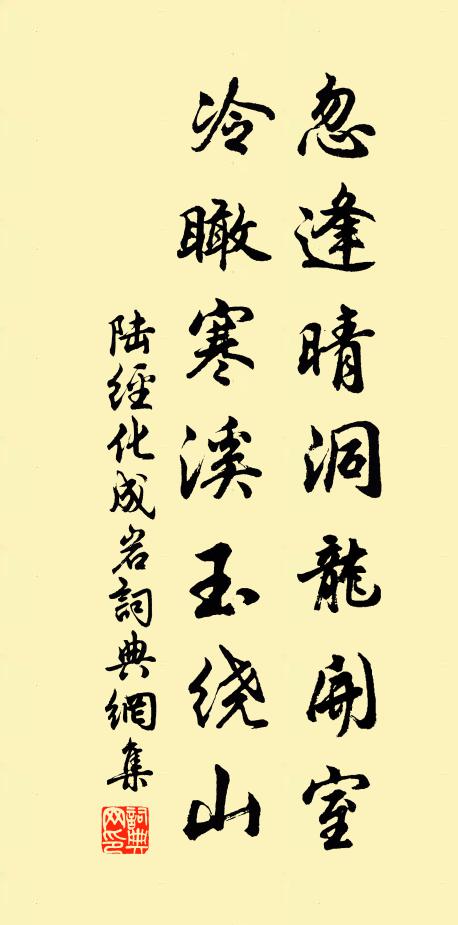 忽逢晴洞龍開室
冷瞰寒溪玉绕山
陆經化成岩詞典網集
詞典网印